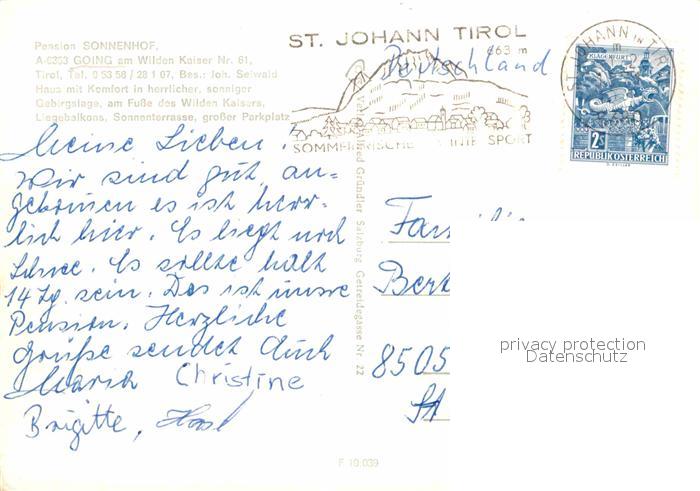 Pension SONNENHOF,
A-6353 GOING am Wilden Kaiser Nr. 61,
Tirol, Tel. 0 53 58 / 28 1 07, Bes.: Joh. Seiwald
Haus mit Komfort in herrlicher, sonniger
Gebirgslage, am Fuße des Wilden Kaisers,
Liegebalkons, Sonnenterrasse, großer Parkplatz
ST. JOHANN TIROL
663 m
SOMMERFRISCHE WINTERSPORT
ST. JOHANN in TIROL
KLAGENFURT
2 S
REPUBLIK ÖSTERREICH
Deutschland
Meine Lieben!
Wir sind gut an-
gekommen es ist herr-
lich hier. Es liegt noch
Schnee. Es sollte halt
14 Tg. sein. Das ist unsre
Pension. Herzliche
Grüße sendet Euch
Maria Christine
Brigitte,
Gründler Salzburg, Getreidegasse Nr. 22
Fam
Bert
8505
privacy protection
Datenschutz
F 10.039